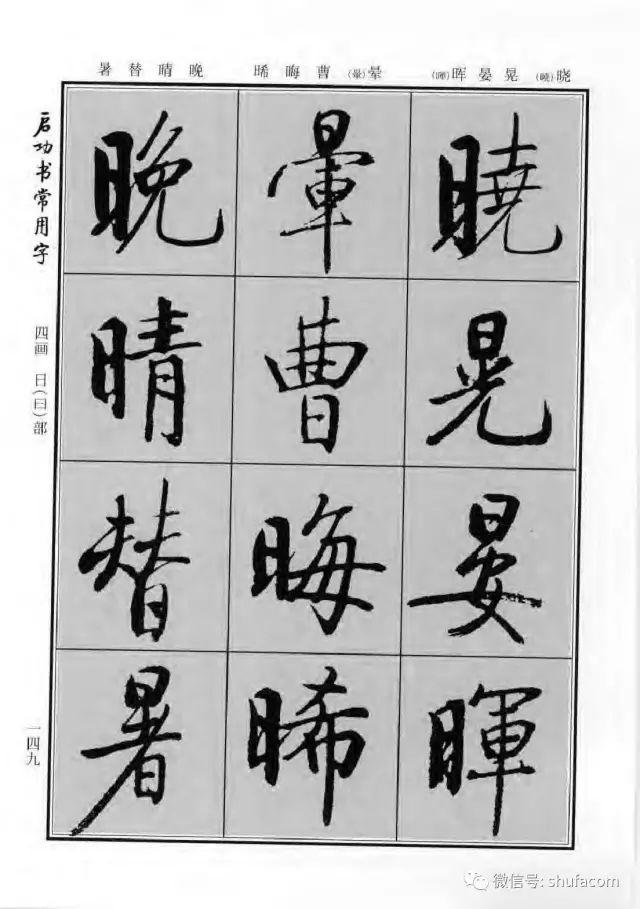 晓(曉)晃晏晖(暉) 晕(暈)曹晦晞 晚晴替暑
曉晃晏暉
暈曹晦晞
晚晴替暑
启功书常用字
四画 日(曰)部
一四九
微信号: shufacom